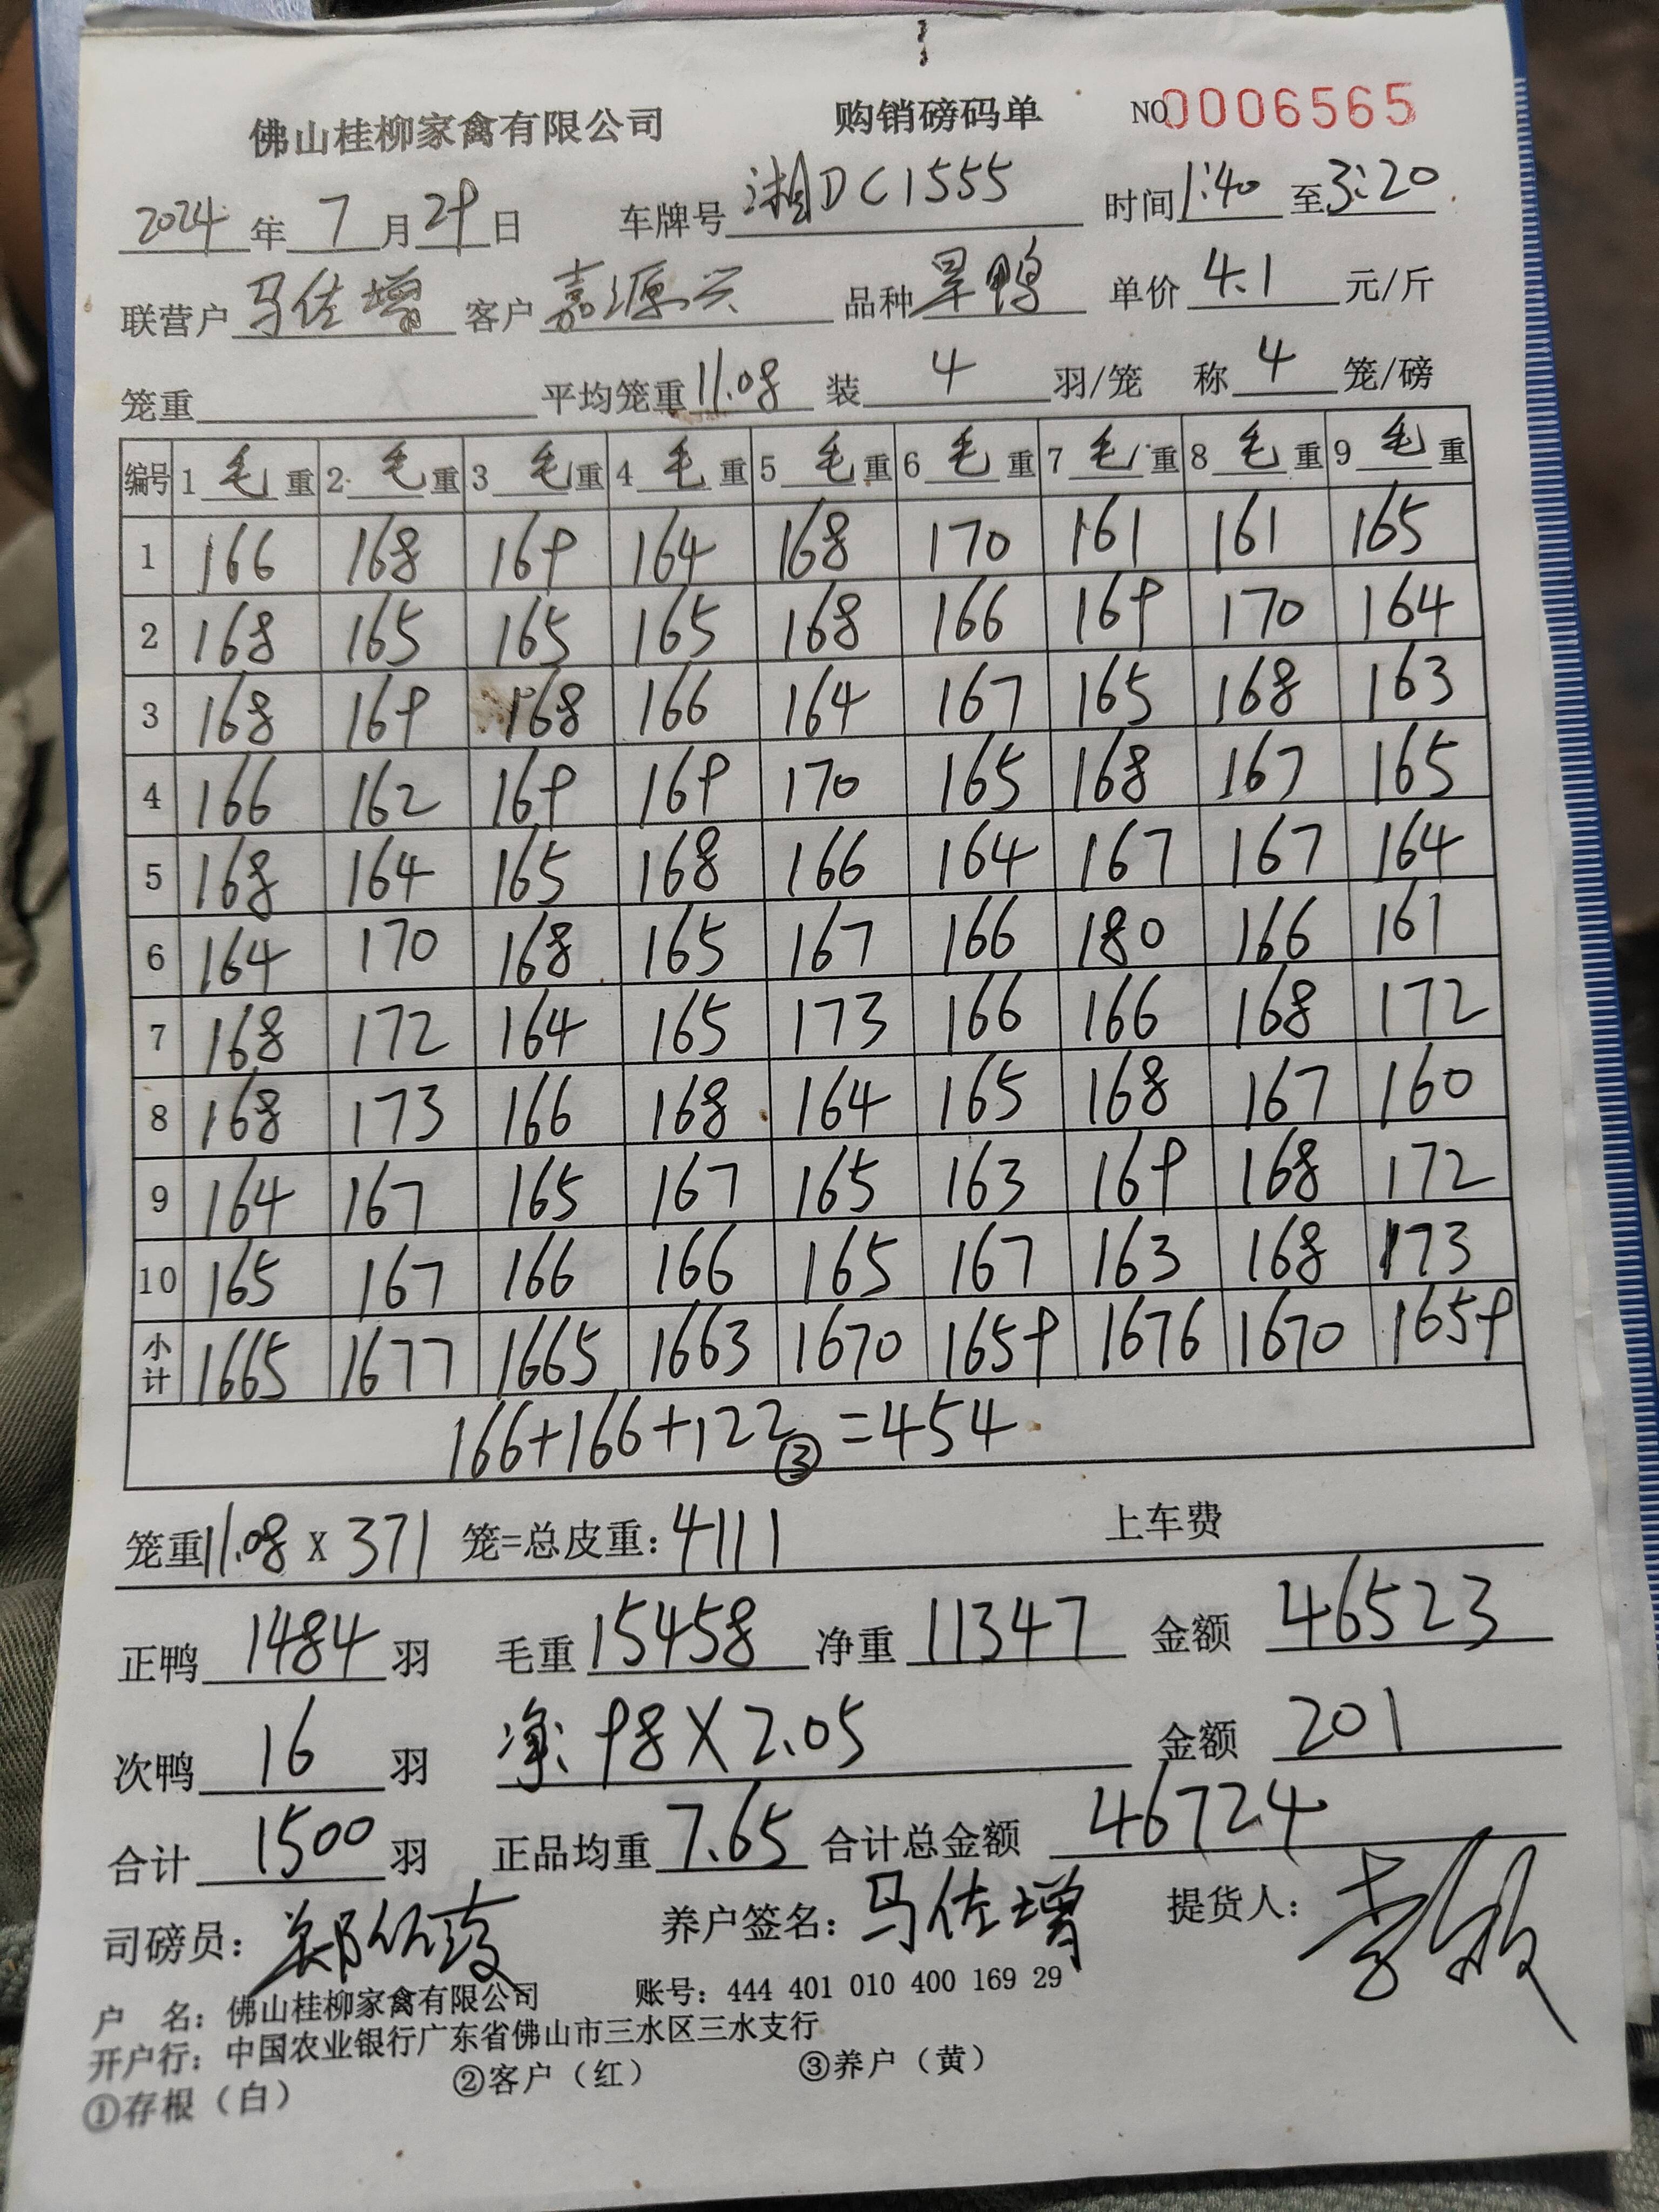 佛山桂柳家禽有限公司 购销磅码单 NO 0006565
2024年 7月 29日 车牌号 湘DC1555 时间 1:40 至 3:20
联营户 马佐增 客户 嘉源兴 品种 旱鸭 单价 4.1 元/斤
笼重 平均笼重 11.08 装 4 羽/笼 称 4 笼/磅
编号 1 毛 重 2 毛 重 3 毛 重 4 毛 重 5 毛 重 6 毛 重 7 毛 重 8 毛 重 9 毛 重
1 166 168 169 164 168 170 161 161 165
2 168 165 165 165 168 166 169 170 164
3 168 169 168 166 164 167 165 168 163
4 166 162 169 169 170 165 168 167 165
5 168 164 165 168 166 164 167 167 164
6 164 170 168 165 167 166 180 166 161
7 168 172 164 165 173 166 166 168 172
8 168 173 166 168 164 165 168 167 160
9 164 167 165 167 165 163 169 168 172
10 165 167 166 166 165 167 163 168 173
小计 1665 1677 1665 1663 1670 1659 1676 1670 1659
166+166+122③=454
笼重 11.08 X 371 笼=总皮重: 4111 上车费
正鸭 1484 羽 毛重 15458 净重 11347 金额 46523
次鸭 16 羽 净: 98X2.05 金额 201
合计 1500 羽 正品均重 7.65 合计总金额 46724
司磅员: 养户签名: 马佐增 提货人:
户 名: 佛山桂柳家禽有限公司 账号: 444 401 010 400 169 29
开户行: 中国农业银行广东省佛山市三水区三水支行
①存根（白） ②客户（红） ③养户（黄）